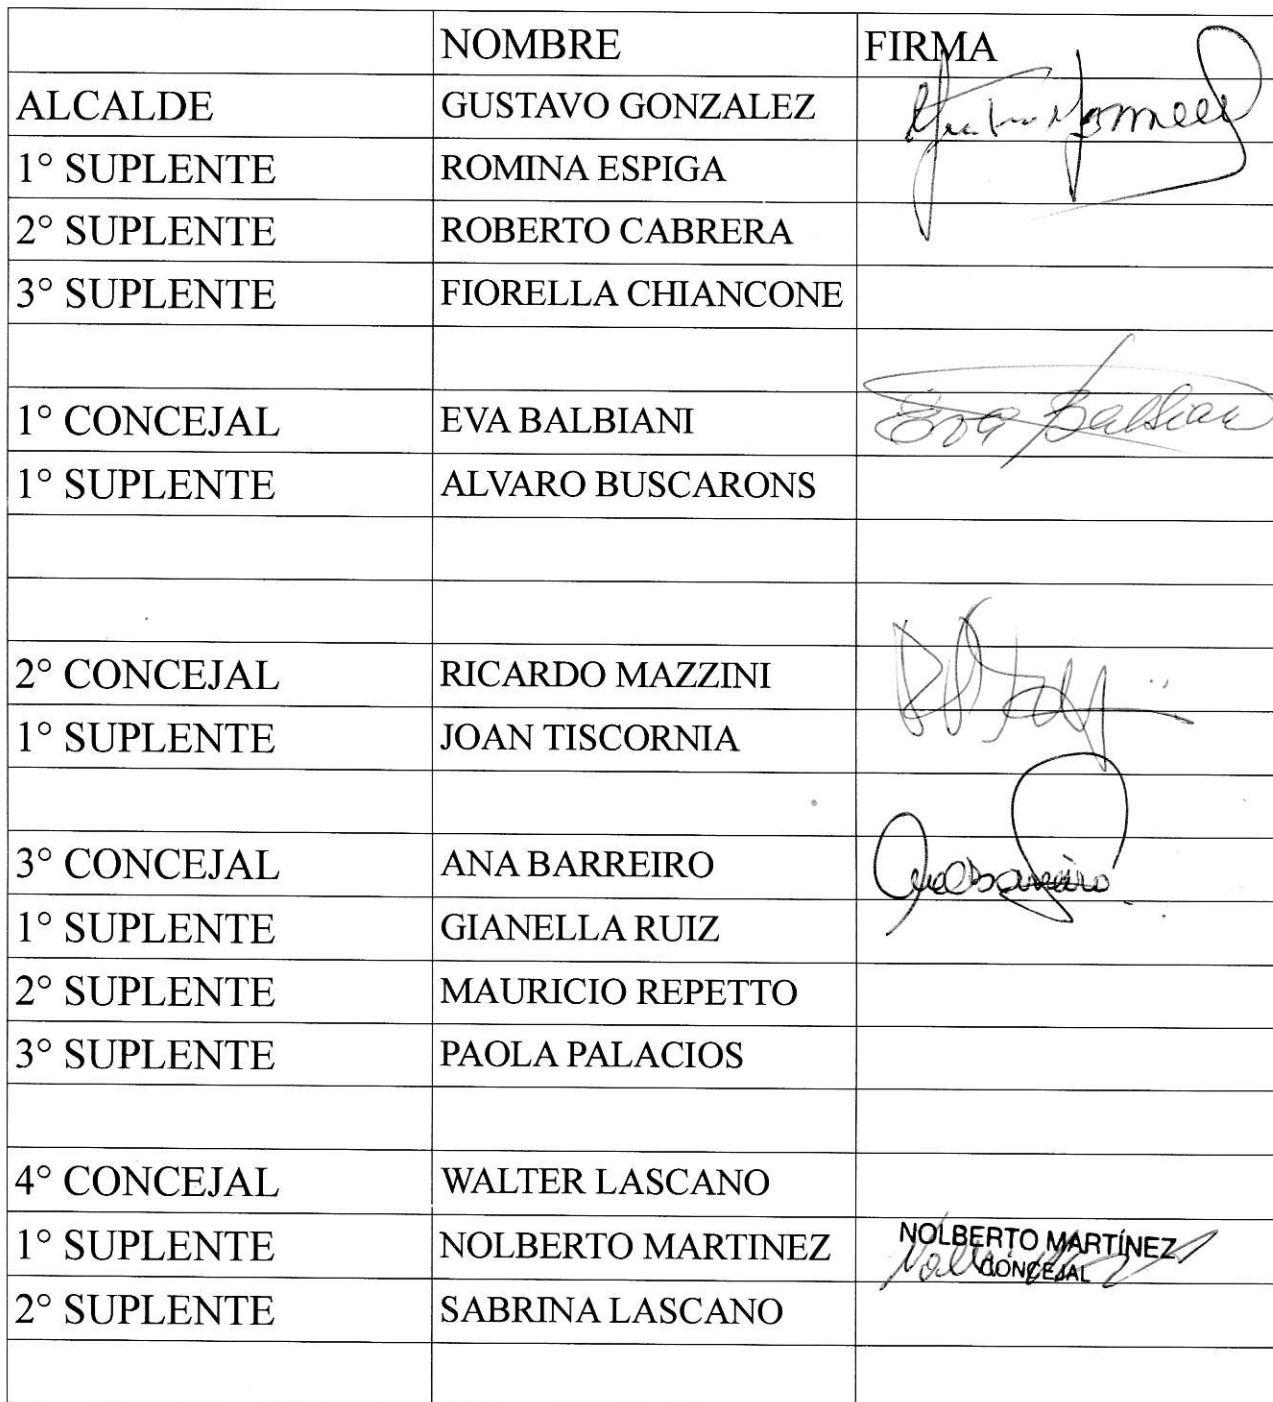 NOMBRE FIRMA
ALCALDE GUSTAVO GONZALEZ
1° SUPLENTE ROMINA ESPIGA
2° SUPLENTE ROBERTO CABRERA
3° SUPLENTE FIORELLA CHIANCONE
1° CONCEJAL EVA BALBIANI Eva Balbiani
1° SUPLENTE ALVARO BUSCARONS
2° CONCEJAL RICARDO MAZZINI
1° SUPLENTE JOAN TISCORNIA
3° CONCEJAL ANA BARREIRO
1° SUPLENTE GIANELLA RUIZ
2° SUPLENTE MAURICIO REPETTO
3° SUPLENTE PAOLA PALACIOS
4° CONCEJAL WALTER LASCANO
1° SUPLENTE NOLBERTO MARTINEZ NOLBERTO MARTÍNEZ
CONCEJAL
2° SUPLENTE SABRINA LASCANO